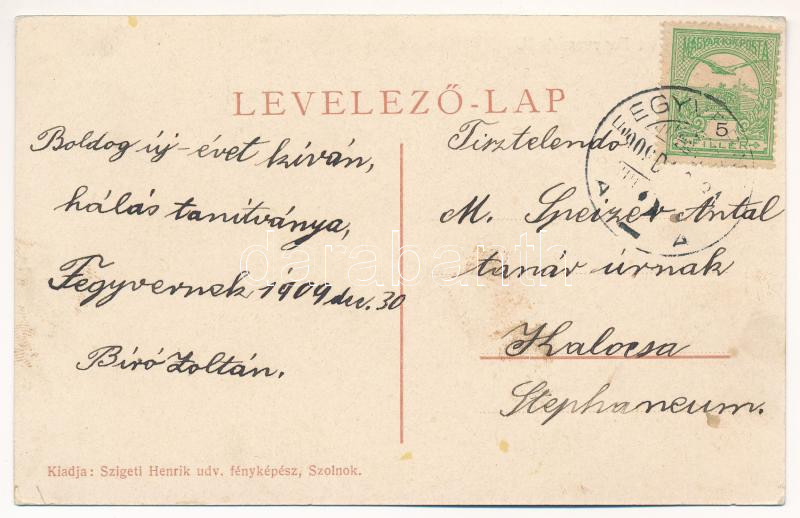 LEVELEZŐ-LAP
Boldog új-évet kíván,
hálás tanítványa,
Fegyvernek 1909 dec. 30
Bíró Zoltán.
Tisztelendő
M. Speizer Antal
tanár úrnak
Kalocsa
Stephaneum.
MAGYAR KIR. POSTA
5
FILLÉR
EGYV
Kiadja: Szigeti Henrik udv. fényképész, Szolnok.
darabanth.com